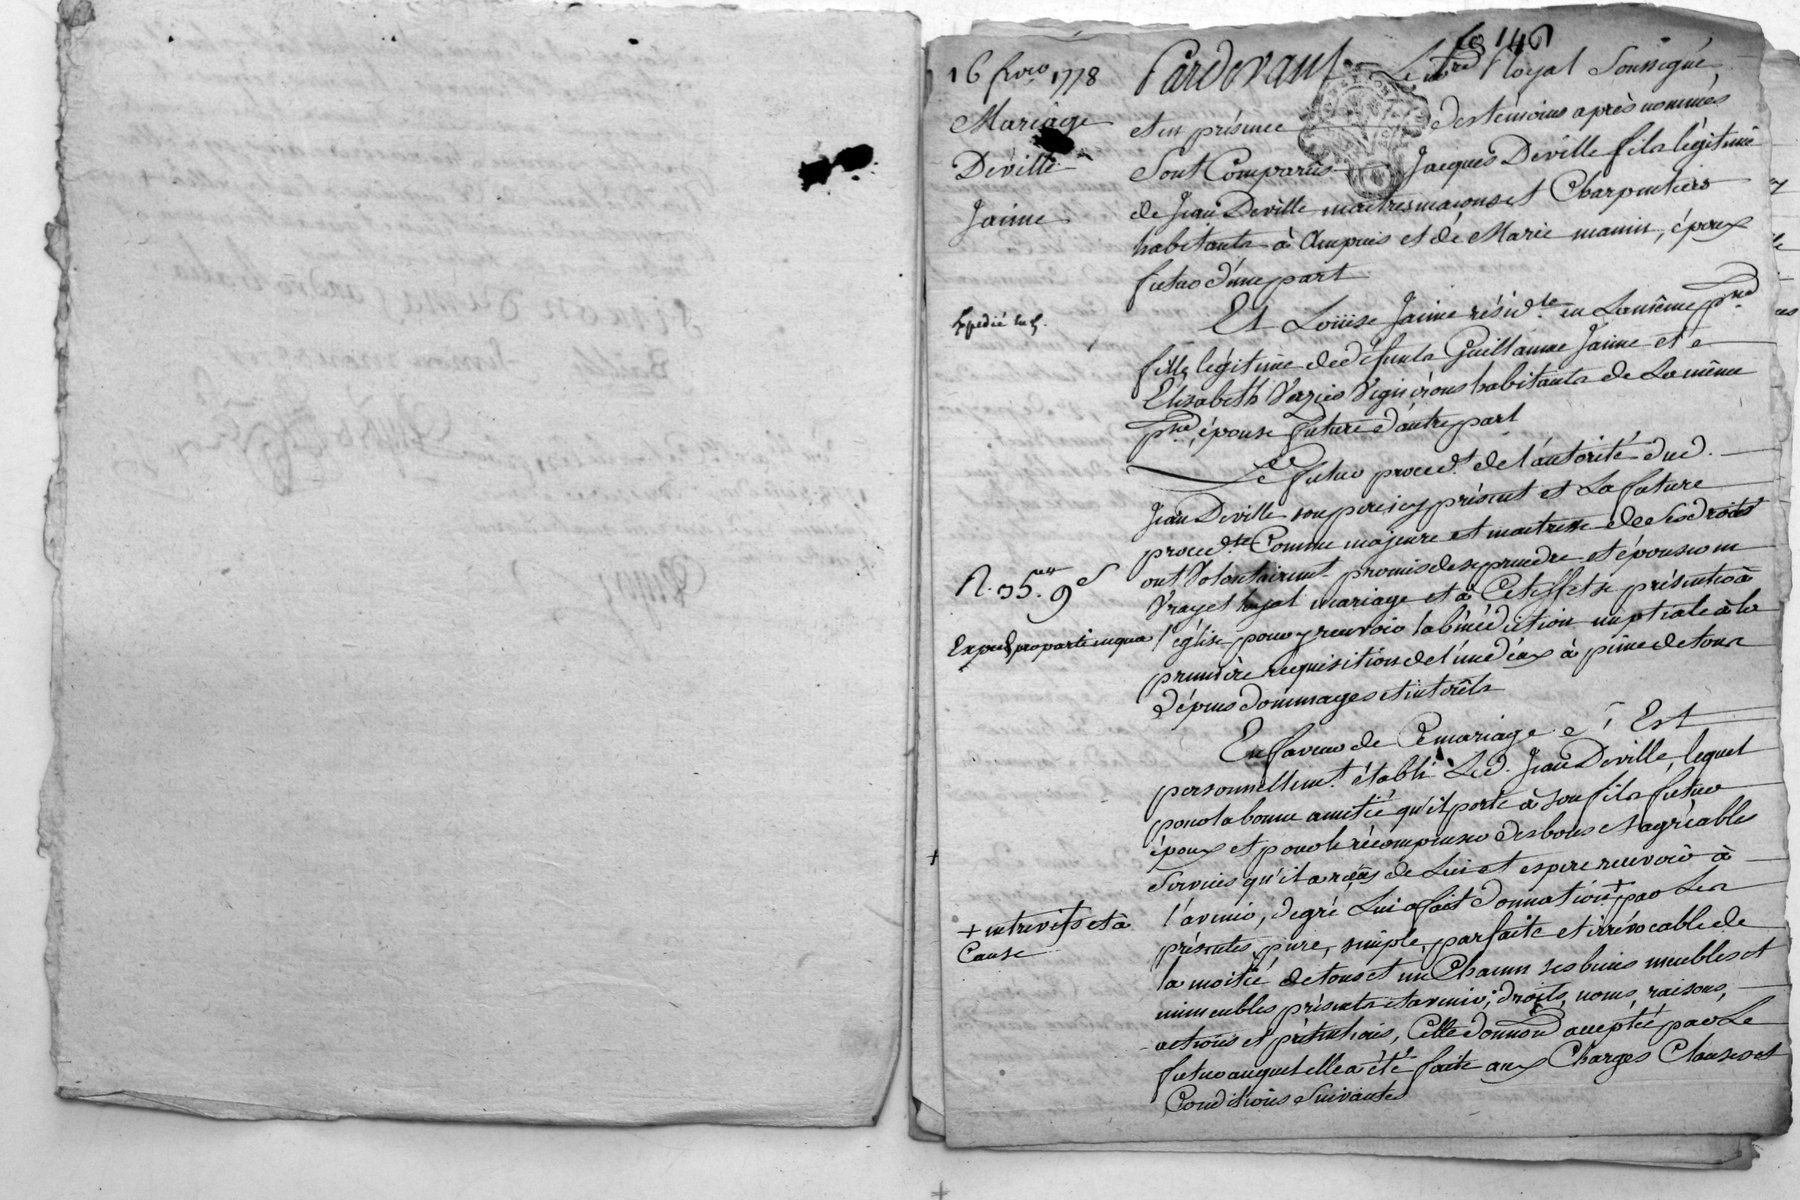 fo 146
16 fvrio 1778
Mariage
Deville
Jaime
Pardevant Le nre Royal Soussigné,
et en présence des temoins après nommés
Sont Comparus Jacques Deville fils légitime
de Jean Deville maitres maçons et Charpentiers
habitants à Ampuis et de Marie mamin, époux
futur d'une part
Expedié
Et Loüise Jaime résid.te en La même p.sse
fille légitime de défunts Guillaume Jaime et
Elisabeth Verzier Vignérons habitants de La même
p.sse, épouse future d'autre part
Le futur proced.t de l'autorité dud.
Jean Deville son pere icy présent et La future
proced.te Comme majeure et maitresse de Ses droits
ont Volontairemt promis de se prendre et épouser en
Vray et loyal mariage et à Cet effet se présenter à
l'église pour y recevoir la bénédiction nuptiale à la
première requisition de l'un d'eux à peine de tous
dépens dommages et intérêts
R. 35. 9
En faveur de Ce mariage S'Est
personnellemt. établi Led. Jean Deville, lequel
pour la bonne amitié qu'il porte à son fils futur
époux et pour le récompenser des bons et agréables
Services qu'il a reçus de Lui et espere recevoir à
l'avenir, de gré Lui a fait donnation + par Les
présentes, pure, simple, parfaite et irrévocable de
la moitié de tous et un Chacun ses biens meubles et
immeubles présents et avenir, droits, noms, raisons,
actions et prétentions, Cette donnon acceptée par Le
futur auquel elle a été faite aux Charges Clauses et
Conditions Suivantes
+ entre vifs et à
Cause